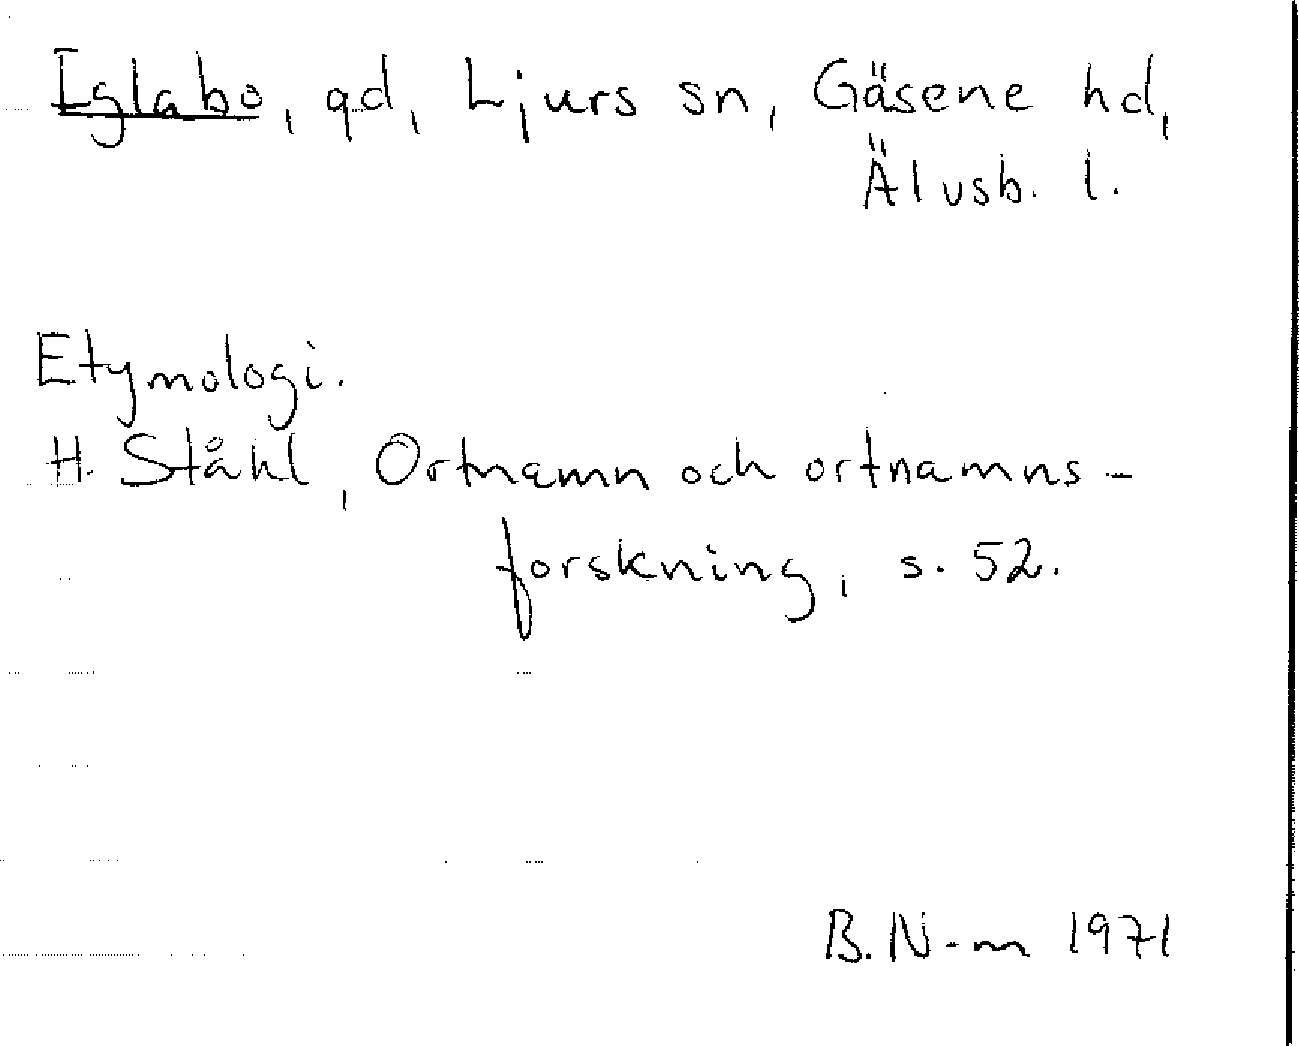 Iglabo, gd, Ljurs sn, Gäsene hd,
Älvsb. l.
Etymologi.
H. Ståhl, Ortnamn och ortnamns-
forskning, s. 52.
B. N-m 1971